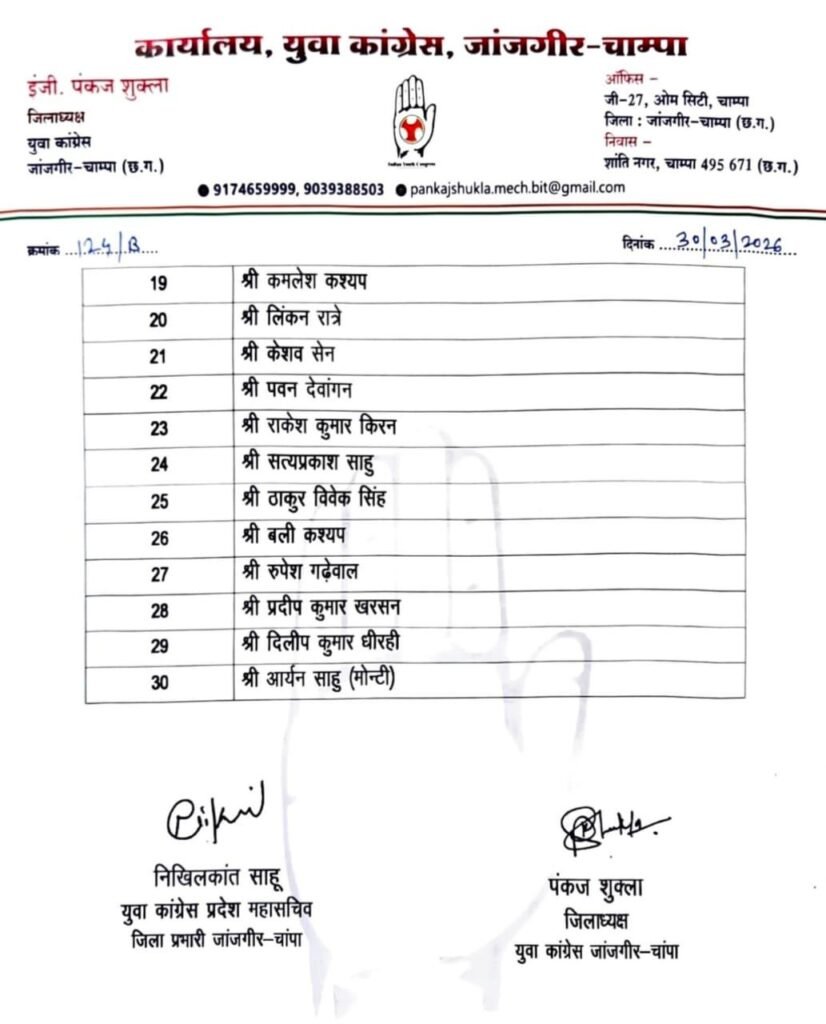 कार्यालय, युवा कांग्रेस, जांजगीर–चाम्पा
इंजी. पंकज शुक्ला
जिलाध्यक्ष
युवा कांग्रेस
जांजगीर–चाम्पा (छ.ग.)
Indian Youth Congress
ऑफिस –
जी–27, ओम सिटी, चाम्पा
जिला : जांजगीर–चाम्पा (छ.ग.)
निवास –
शांति नगर, चाम्पा 495 671 (छ.ग.)
● 9174659999, 9039388503 ● pankajshukla.mech.bit@gmail.com
क्रमांक ...124/B.... दिनांक ....30/03/2026....
19 श्री कमलेश कश्यप
20 श्री लिंकन रात्रे
21 श्री केशव सेन
22 श्री पवन देवांगन
23 श्री राकेश कुमार किरन
24 श्री सत्यप्रकाश साहु
25 श्री ठाकुर विवेक सिंह
26 श्री बली कश्यप
27 श्री रुपेश गढ़ेवाल
28 श्री प्रदीप कुमार खरसन
29 श्री दिलीप कुमार धीरही
30 श्री आर्यन साहु (मोन्टी)
निखिलकांत साहू
युवा कांग्रेस प्रदेश महासचिव
जिला प्रभारी जांजगीर–चांपा
पंकज शुक्ला
जिलाध्यक्ष
युवा कांग्रेस जांजगीर–चांपा